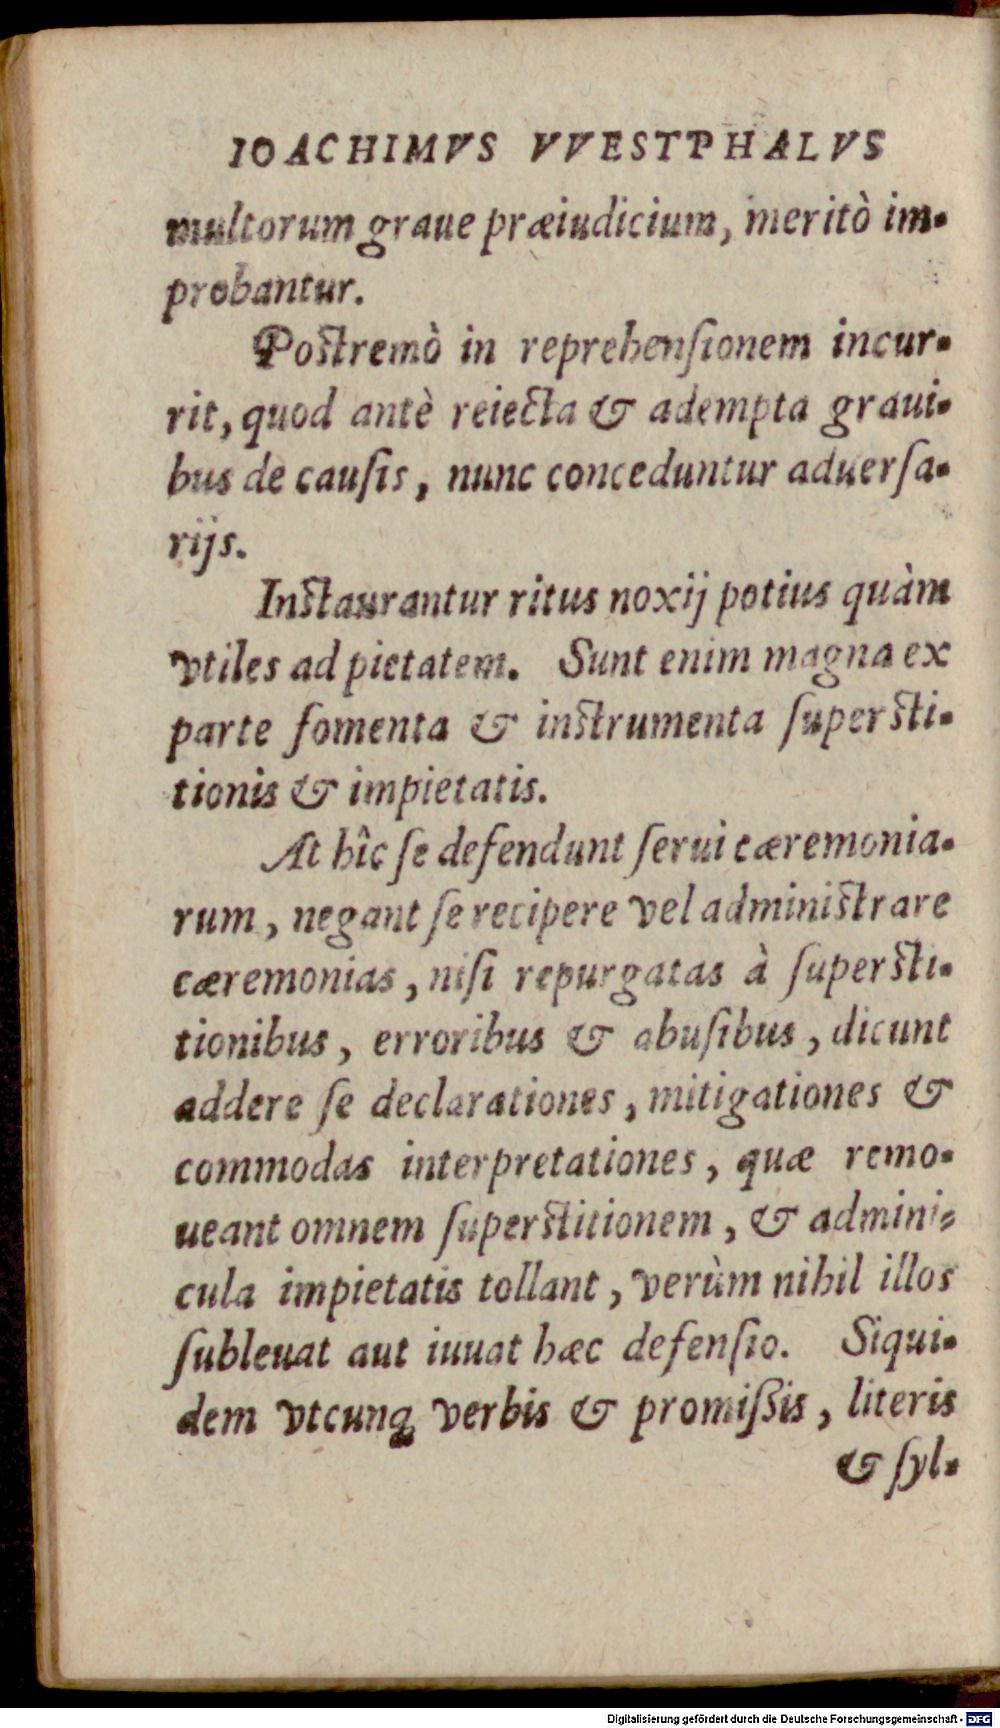 IOACHIMVS VVESTPHALVS
multorum graue præiudicium, meritò im-
probantur.
Postremò in reprehenſionem incur-
rit, quod antè reiecta & adempta graui-
bus de cauſis, nunc conceduntur aduerſa-
rijs.
Instaurantur ritus noxij potius quàm
vtiles ad pietatem. Sunt enim magna ex
parte fomenta & instrumenta ſupersti-
tionis & impietatis.
At hîc ſe defendunt ſerui cæremonia-
rum, negant ſe recipere vel administrare
cæremonias, niſi repurgatas à ſupersti-
tionibus, erroribus & abuſibus, dicunt
addere ſe declarationes, mitigationes &
commodas interpretationes, quæ remo-
ueant omnem ſuperstitionem, & admini-
cula impietatis tollant, verùm nihil illos
ſubleuat aut iuuat hæc defenſio. Siqui-
dem vtcunq; verbis & promiſsis, literis
& ſyl-
Digitalisierung gefördert durch die Deutsche Forschungsgemeinschaft - DFG